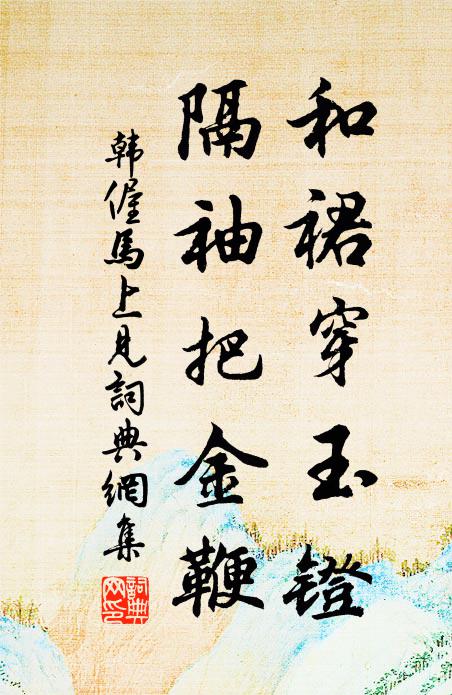 和裙穿玉镫
隔袖把金鞭
韩偓馬上见詞典網集
詞典网印